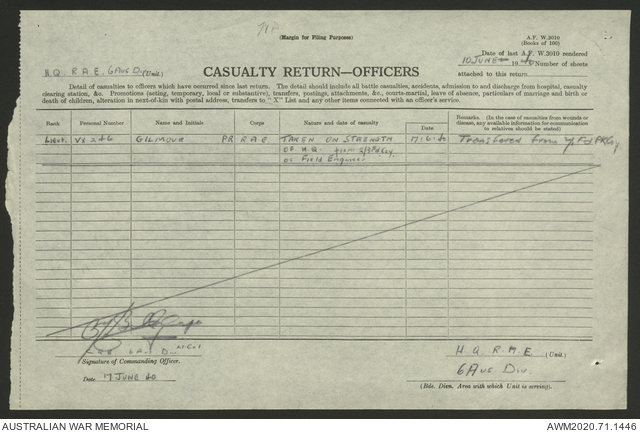 (Margin for Filing Purposes)
A.F. W.3010
(Books of 100)
H.Q. R.A.E. 6 Aus Div (Unit)
Date of last A.F. W.3010 rendered
10 JUNE 1940 Number of sheets
attached to this return
CASUALTY RETURN—OFFICERS
Detail of casualties to officers which have occurred since last return. The detail should include all battle casualties, accidents, admission to and discharge from hospital, casualty
clearing station, &c. Promotions (acting, temporary, local or substantive), transfers, postings, attachments, &c., courts-martial, leave of absence, particulars of marriage and birth or
death of children, alteration in next-of-kin with postal address, transfers to "X" List and any other items connected with an officer's service.
Rank Personal Number Name and Initials Corps Nature and date of casualty Date Remarks. (In the case of casualties from wounds or disease, any available information for communication to relatives should be stated)
Lieut. GILMOUR PR RAE TAKEN ON STRENGTH 17.6.40 Transferred from
OF H.Q. from 2/3 Fd Coy
as Field Engineer
Lt Col
Signature of Commanding Officer.
Date 17 JUNE 40
H.Q. R.A.E (Unit)
6 Aus Div.
(Bde. Divn. Area with which Unit is serving).
AUSTRALIAN WAR MEMORIAL
AWM2020.71.1446